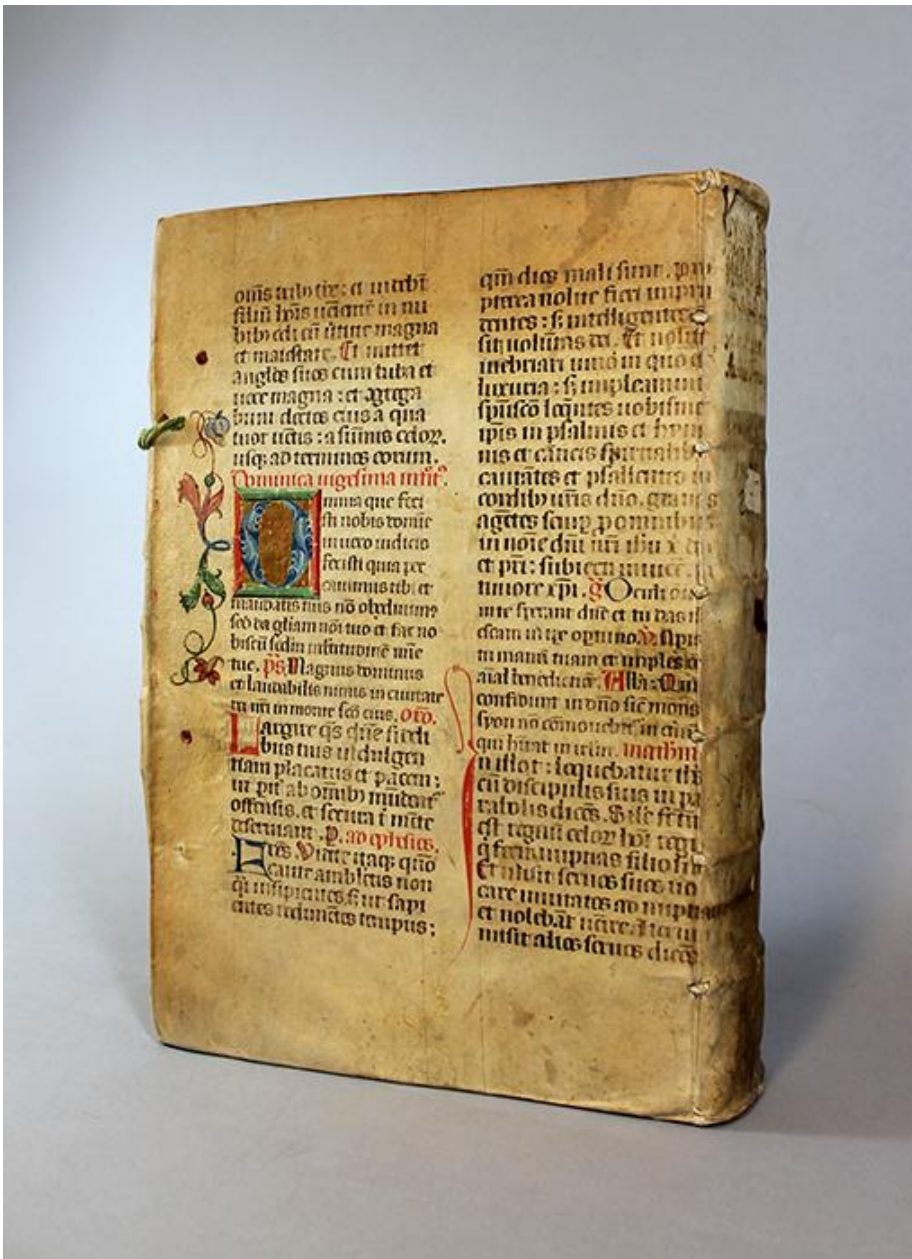 om̄s tribꝰ tr̄e: et uidebt̄
filiū hoı̄s ueniētē in nu
bibꝰ celi cū ūtute magna
et maiestate. Et mittet
anglos suos cum tuba et
uoce magna: et ꝯgrega
bunt electos eius a qua
tuor uētis: a sūmis celoꝝ.
usqꝫ ad terminos eorum.
Dominica uigesima introitꝰ.
Omnia que feci
sti nobis domīe
in uero iudicio
fecisti quia pec
cauimus tibi et
mandatis tuis nō obediuimꝰ
sed da gliam nōi tuo et fac no
biscū scdm multitudinē mīe
tue. p̄s. Magnus dominus
et laudabilis nimis in ciuitate
dei nr̄i in monte scō eius. Oro.
Largire qs̄ dn̄e fideli
bus tuis indulgen
tiam placatus et pacem:
ut pit̄ ab om̄ibꝰ mūdent̄
offensis. et secura t̄ mēte
deseruiant. P. ad ephesios.
Fres. Uidete itaqꝫ quō
caute ambletis non
q̄i insipientes. s; ut sapi
entes redimētes tempus:
qm̄ dies mali sunt. Pro
pterea nolite fieri impru
dentes: s; intelligentes
sit uolūtas dei. Et nolite
inebriari uino in quo est
luxuria: s; impleamini
spūscō loqn̄tes uobismet
ipis in psalmis et hym
nis et cāticis spiritualibꝰ
cantātes et psallentes in
cordibꝰ ur̄is dn̄o. gratias
agētes semꝑ pro omnibus
in noı̄e dn̄i nr̄i ihū x̄
et pri: subiecti inuicē
timore xp̄i. g̃ Oculi
in te sperant dn̄e et tu das il
escam in tp̄e optuno. V̄. Apis
tu manū tuam et imples
aı̄al benedictiōe. Alla: Qui
confidunt in dn̄o sic mons
syon nō cōmouebit̄ in et̄
qui hı̄tat in irlm. Matheū
In illo t: loquebatur ihs
cū discipulis suis in pa
rabolis dicēs. Sile fc̄tū
est regnū celoꝝ hoı̄ regi
q̄ fecit nuptias filio suo
Et misit seruos suos uo
care inuitatos ad nuptias
et nolebāt uēire. Iterū
misit alios seruos dicēs